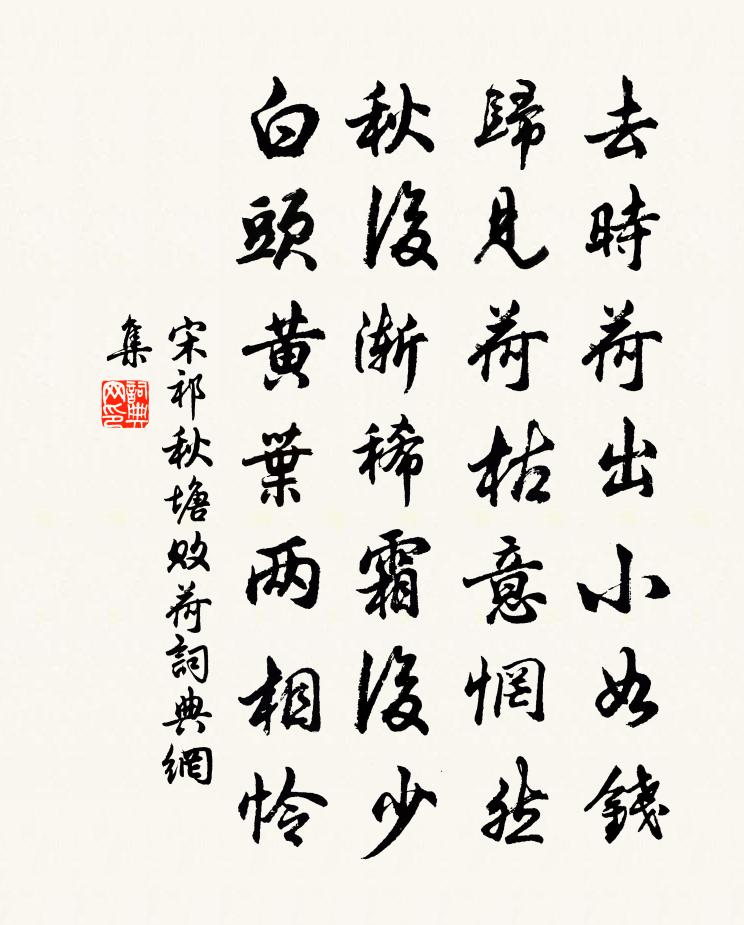 去時荷出小如錢
歸見荷枯意惘然
秋後漸稀霜後少
白頭黃葉两相怜
宋祁秋塘败荷詞典網
集
詞典网印